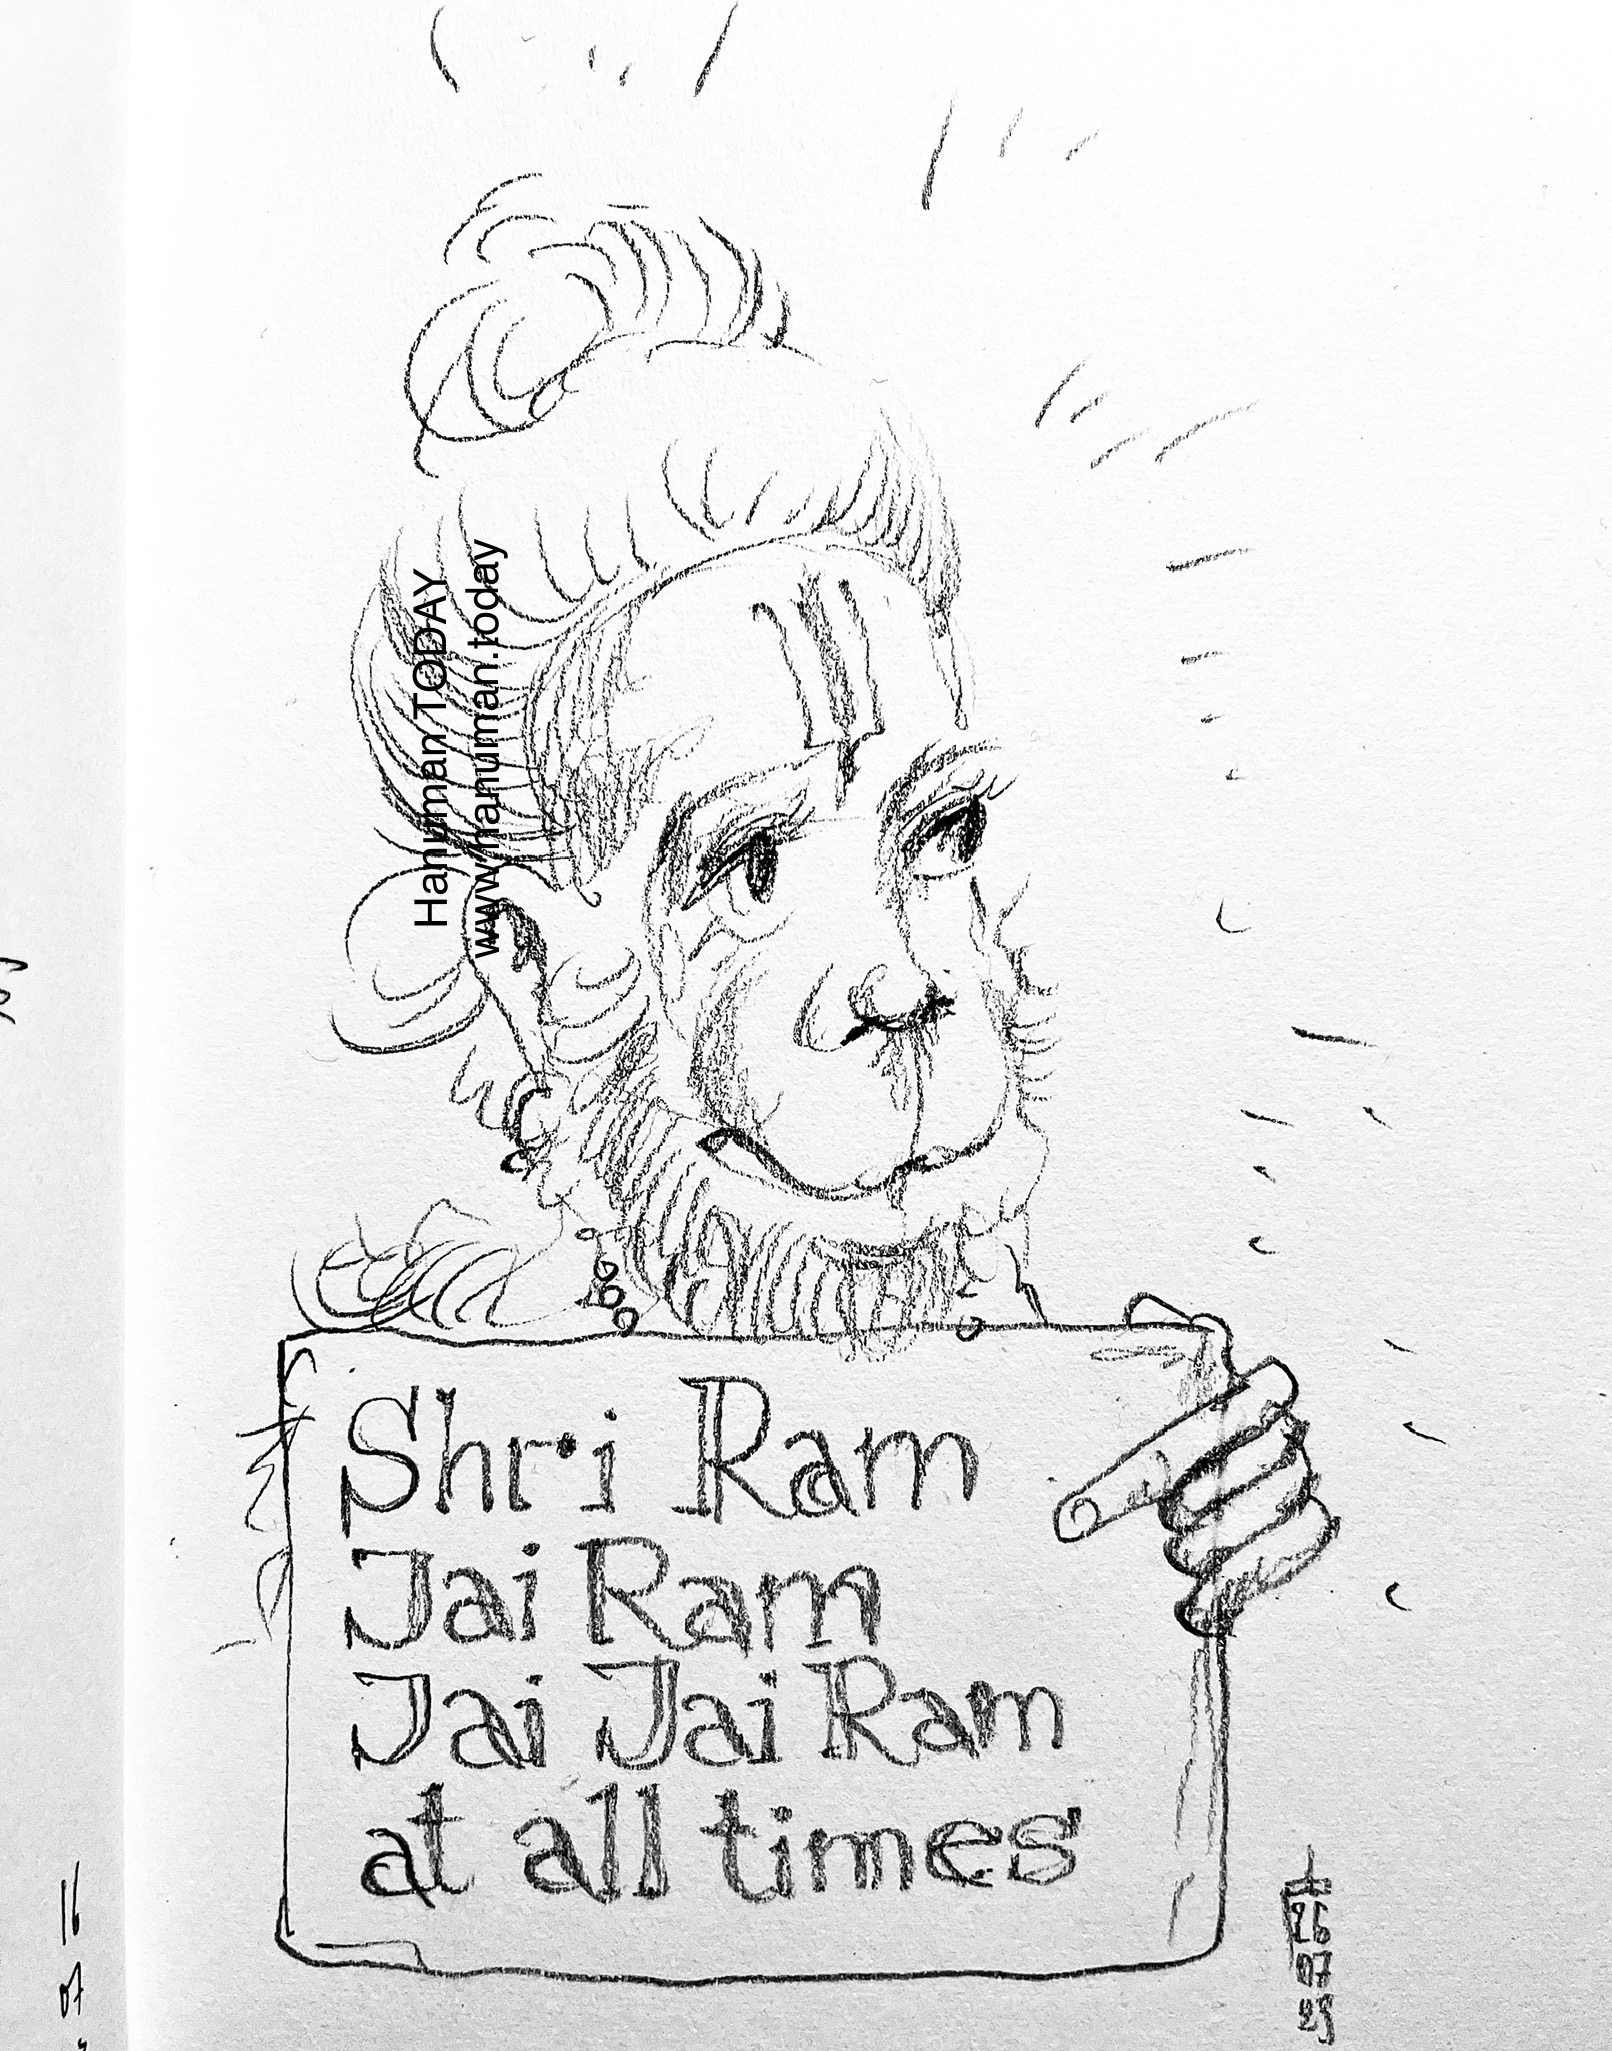 Hanuman TODAY
www.hanuman.today
Shri Ram
Jai Ram
Jai Jai Ram
at all times
16
07
26
07